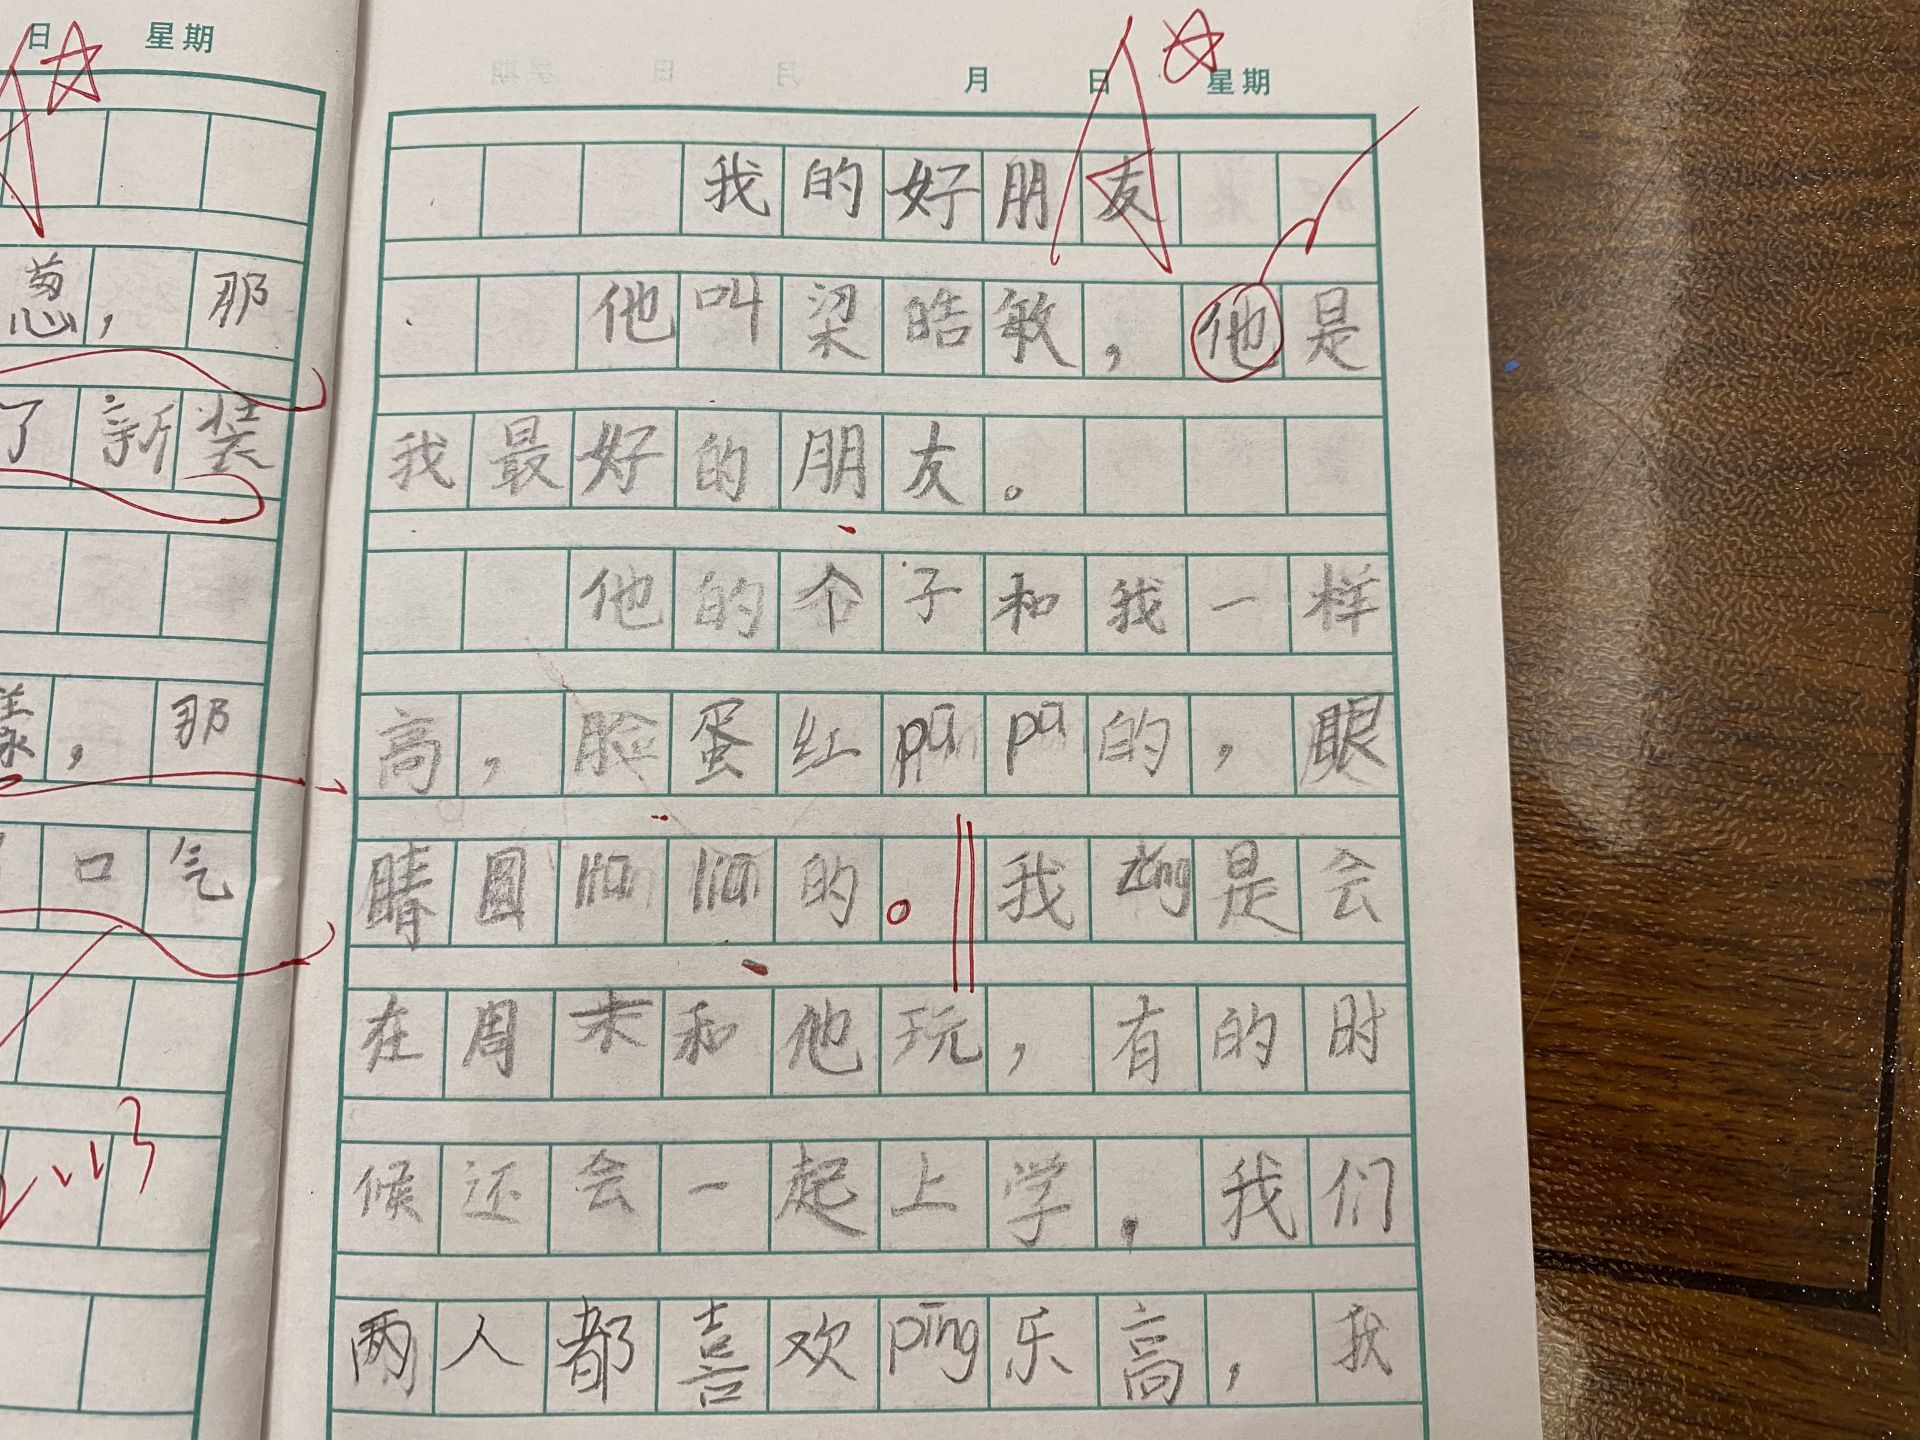 日 星期
葱，那
了新装
，那
口气
月 日 星期
我的好朋友
他叫梁皓敏，他是
我最好的朋友。
他的个子和我一样
高，脸蛋红pūpū的，眼
睛圆liūliū的。我zǒng是会
在周末和他玩，有的时
候还会一起上学，我们
两人都喜欢pīng乐高，我